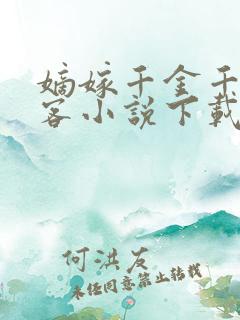 嫡嫁千金千
客小说下载
何洪友
未经同意禁止转载